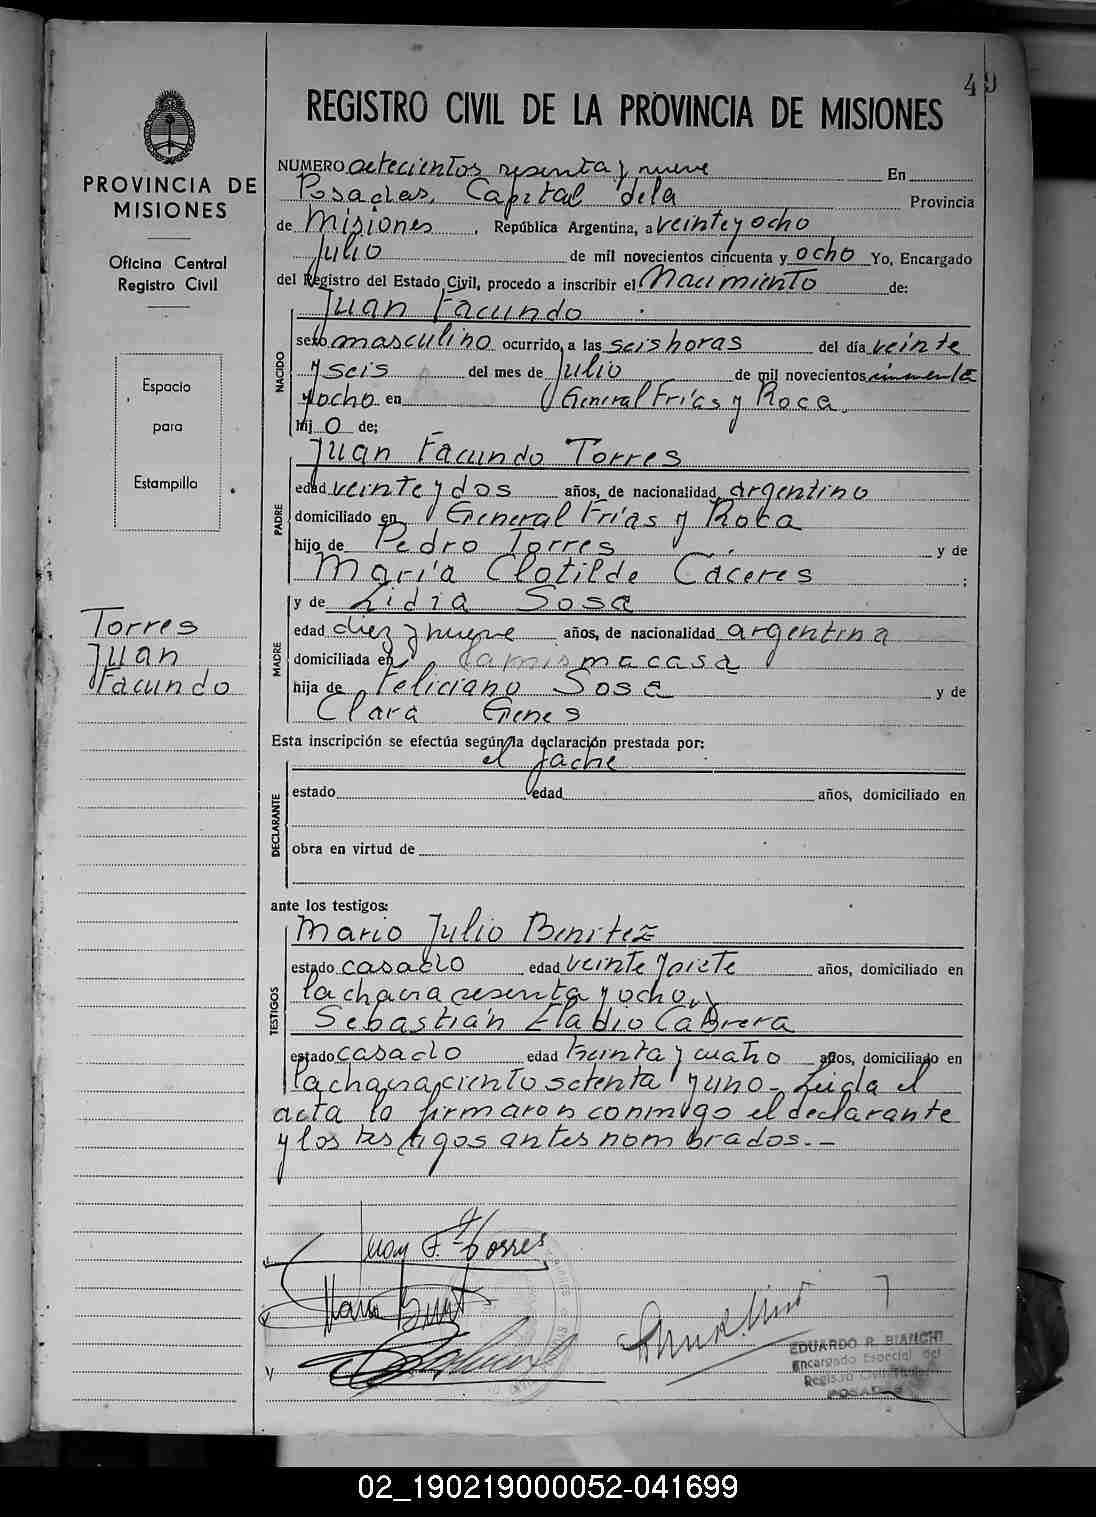 49
REGISTRO CIVIL DE LA PROVINCIA DE MISIONES
PROVINCIA DE
MISIONES
Oficina Central
Registro Civil
Espacio
para
Estampilla
Torres
Juan
Facundo
NUMERO setecientos sesenta y nueve En
Posadas, Capital de la Provincia
de Misiones, República Argentina, a veinte y ocho
Julio de mil novecientos cincuenta y ocho Yo, Encargado
del Registro del Estado Civil, procedo a inscribir el Nacimiento de:
NACIDO
Juan Facundo
sexo masculino ocurrido a las seis horas del día veinte
y seis del mes de Julio de mil novecientos cincuenta
y ocho en General Frías y Roca.
hij o de:
PADRE
Juan Facundo Torres
edad veinte y dos años, de nacionalidad argentino
domiciliado en General Frías y Roca
hijo de Pedro Torres y de
María Clotilde Cáceres ;
MADRE
y de Lidia Sosa
edad diez y nueve años, de nacionalidad argentina
domiciliada en la misma casa
hija de Feliciano Sosa y de
Clara Genes
Esta inscripción se efectúa según la declaración prestada por:
DECLARANTE
el padre
estado edad años, domiciliado en
obra en virtud de
ante los testigos:
TESTIGOS
Mario Julio Benitez
estado casado edad veinte y siete años, domiciliado en
la chacra sesenta y ocho, y
Sebastián Eladio Cabrera
estado casado edad treinta y cuatro años, domiciliado en
la chacra ciento setenta y uno - Leida el
acta la firmaron conmigo el declarante
y los testigos antes nombrados.-
Juan F. Torres
EDUARDO R. BIANCHI
Encargado Especial del
Registro Civil
POSADAS
02_190219000052-041699